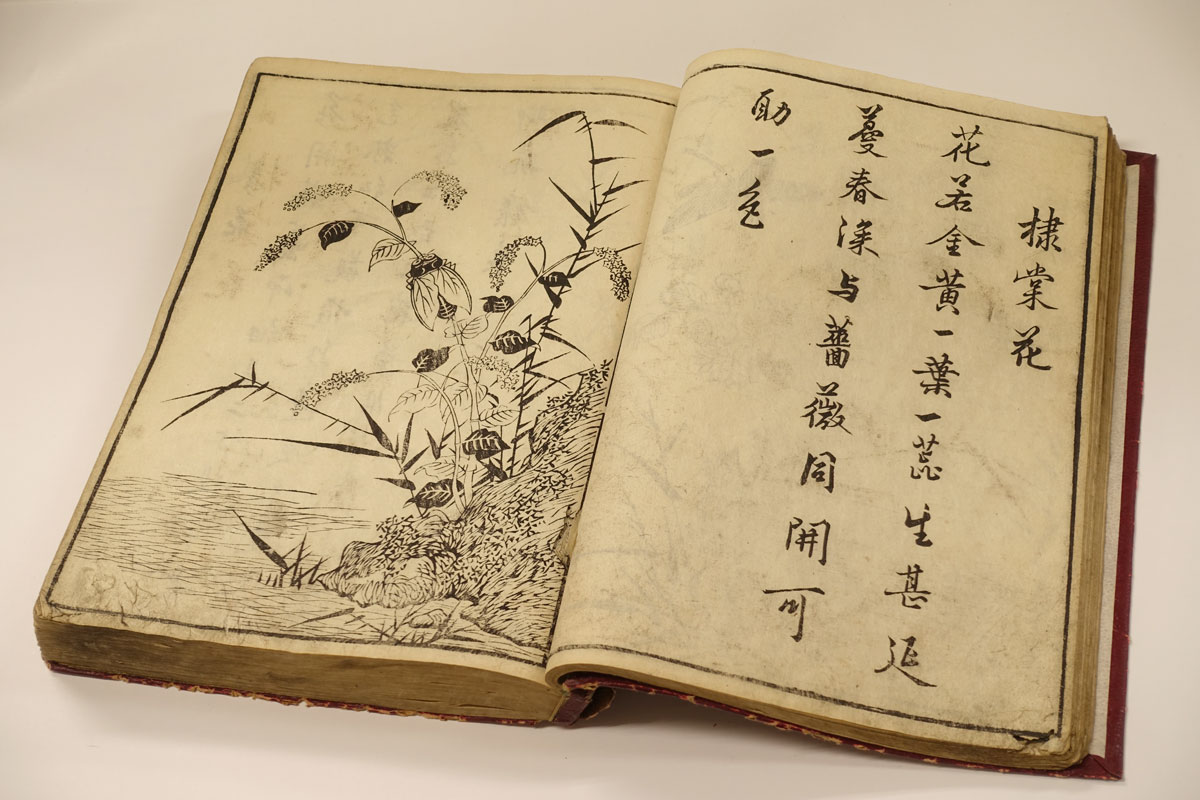 棣棠花
花若金黄一葉一蕊生甚延
蔓春深与薔薇同開可
助一色